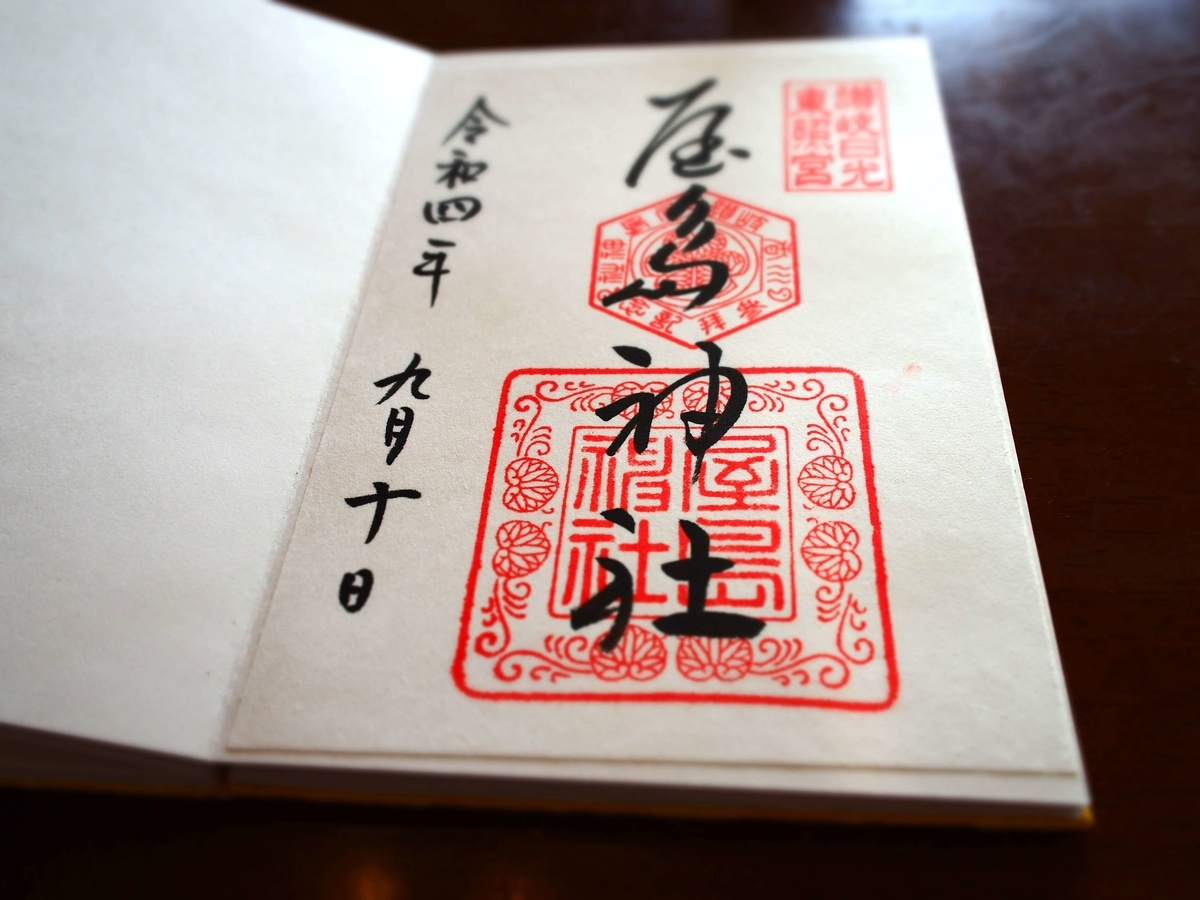 讃岐日光
東照宮
屋島神社
參拜記念
屋島
神社
令和四年 九月十日